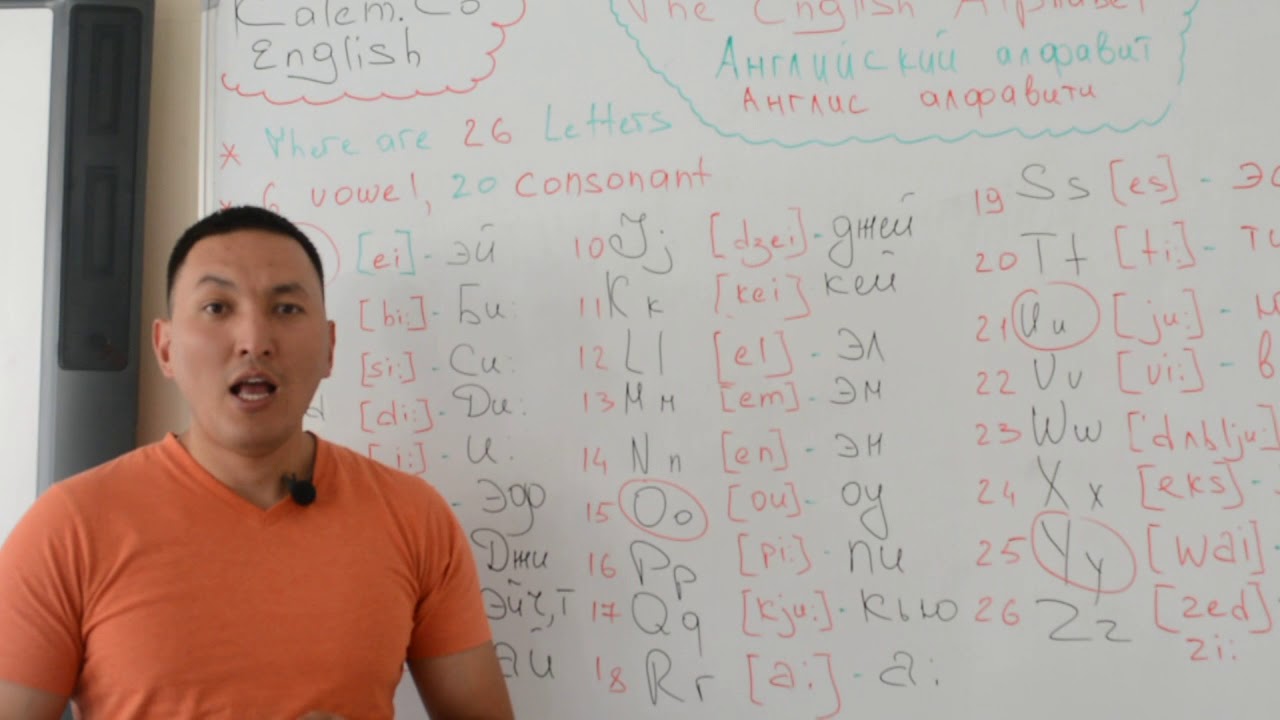 Kalem.Co
English
The English Alphabet
Английский алфавит
Англис алфавити
* There are 26 Letters
* 6 vowel, 20 consonant
[ei] - эй
[bi:] - Би:
[si:] - Си:
[di:] - Ди:
[i:] - И:
- Эф
Джи
Эйч,т
Ай
10 Jj [dzei] - джей
11 Kk [kei] кей
12 Ll [el] - эл
13 Mm [em] - эм
14 Nn [en] - эн
15 Oo [ou] - оу
16 Pp [pi:] - пи
17 Qq [kju:] - кью
18 Rr [a:] - a:
19 Ss [es] - эс
20 Tt [ti:] - ти
21 Uu [ju:] -
22 Vv [vi:] - в
23 Ww ['dʌblju:]
24 Xx [eks] -
25 Yy [wai] -
26 Zz [zed]
zi: